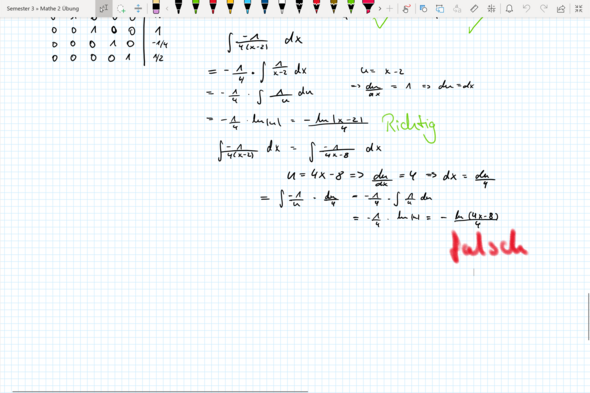 Semester 3 » Mathe 2 Übung
0 0 1 0 0 1
0 0 0 1 0 -1/4
0 0 0 0 1 1/2
∫ -1/(4(x-2)) dx
= -1/4 · ∫ 1/(x-2) dx u = x-2
= -1/4 · ∫ 1/u du => du/dx = 1 => du = dx
= -1/4 · ln|u| = -ln|x-2|/4 Richtig
∫ -1/(4(x-2)) dx = ∫ -1/(4x-8) dx
u = 4x-8 => du/dx = 4 => dx = du/4
= ∫ -1/u · du/4 = -1/4 · ∫ 1/u du
= -1/4 · ln|u| = - ln(4x-8)/4
falsch